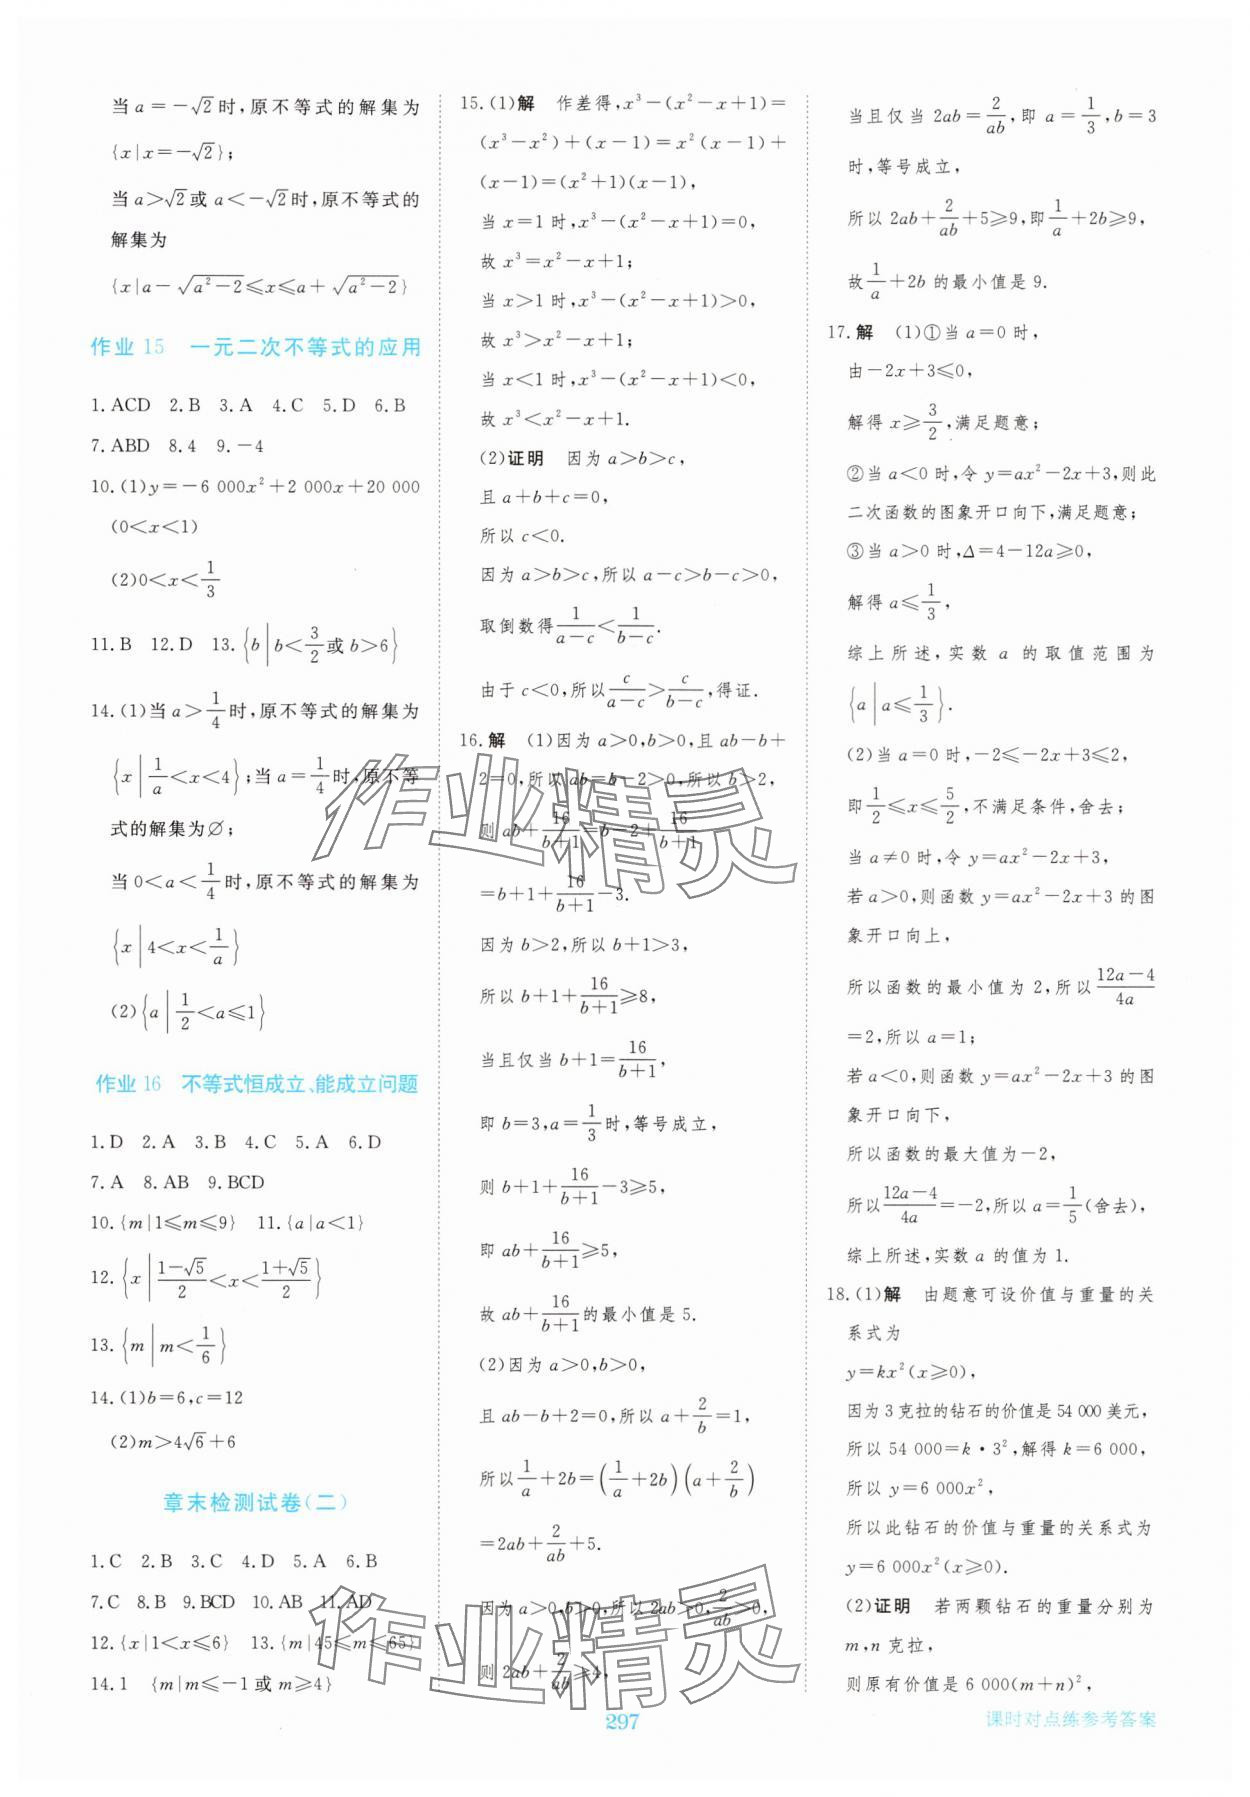 当 a=-√2时,原不等式的解集为
{x|x=-√2};
当 a>√2或 a<-√2时,原不等式的
解集为
{x|a-√(a²-2)≤x≤a+√(a²-2)}
作业 15 一元二次不等式的应用
1.ACD 2.B 3.A 4.C 5.D 6.B
7.ABD 8.4 9.-4
10.(1)y=-6 000x²+2 000x+20 000
(0<x<1)
(2)0<x<1/3
11.B 12.D 13.{b|b<3/2或 b>6}
14.(1)当 a>1/4时,原不等式的解集为
{x|1/a<x<4};当 a=1/4时,原不等
式的解集为∅;
当 0<a<1/4时,原不等式的解集为
{x|4<x<1/a}
(2){a|1/2<a≤1}
作业 16 不等式恒成立、能成立问题
1.D 2.A 3.B 4.C 5.A 6.D
7.A 8.AB 9.BCD
10.{m|1≤m≤9} 11.{a|a<1}
12.{x|(1-√5)/2<x<(1+√5)/2}
13.{m|m<1/6}
14.(1)b=6,c=12
(2)m>4√6+6
章末检测试卷(二)
1.C 2.B 3.C 4.D 5.A 6.B
7.C 8.B 9.BCD 10.AB 11.AD
12.{x|1<x≤6} 13.{m|45≤m≤65}
14.1 {m|m≤-1或 m≥4}
15.(1)解 作差得,x³-(x²-x+1)=
(x³-x²)+(x-1)=x²(x-1)+
(x-1)=(x²+1)(x-1),
当 x=1 时,x³-(x²-x+1)=0,
故 x³=x²-x+1;
当 x>1 时,x³-(x²-x+1)>0,
故 x³>x²-x+1;
当 x<1 时,x³-(x²-x+1)<0,
故 x³<x²-x+1.
(2)证明 因为 a>b>c,
且 a+b+c=0,
所以 c<0.
因为 a>b>c,所以 a-c>b-c>0,
取倒数得1/(a-c)<1/(b-c).
由于 c<0,所以c/(a-c)>c/(b-c),得证.
16.解 (1)因为 a>0,b>0,且 ab-b+
2=0,所以 ab=b-2>0,所以 b>2,
则 ab+16/(b+1)=b-2+16/(b+1)
=b+1+16/(b+1)-3.
因为 b>2,所以 b+1>3,
所以 b+1+16/(b+1)≥8,
当且仅当 b+1=16/(b+1),
即 b=3,a=1/3时,等号成立,
则 b+1+16/(b+1)-3≥5,
即 ab+16/(b+1)≥5,
故 ab+16/(b+1)的最小值是 5.
(2)因为 a>0,b>0,
且 ab-b+2=0,所以 a+2/b=1,
所以1/a+2b=(1/a+2b)(a+2/b)
=2ab+2/ab+5.
因为 a>0,b>0,所以 2ab>0,2/ab>0,
则 2ab+2/ab≥4,
当且仅当 2ab=2/ab,即 a=1/3,b=3
时,等号成立,
所以 2ab+2/ab+5≥9,即1/a+2b≥9,
故1/a+2b 的最小值是 9.
17.解 (1)①当 a=0 时,
由-2x+3≤0,
解得 x≥3/2,满足题意;
②当 a<0 时,令 y=ax²-2x+3,则此
二次函数的图象开口向下,满足题意;
③当 a>0 时,Δ=4-12a≥0,
解得 a≤1/3,
综上所述,实数 a 的取值范围为
{a|a≤1/3}.
(2)当 a=0 时,-2≤-2x+3≤2,
即1/2≤x≤5/2,不满足条件,舍去;
当 a≠0 时,令 y=ax²-2x+3,
若 a>0,则函数 y=ax²-2x+3 的图
象开口向上,
所以函数的最小值为 2,所以(12a-4)/4a
=2,所以 a=1;
若 a<0,则函数 y=ax²-2x+3 的图
象开口向下,
所以函数的最大值为-2,
所以(12a-4)/4a=-2,所以 a=1/5(舍去),
综上所述,实数 a 的值为 1.
18.(1)解 由题意可设价值与重量的关
系式为
y=kx²(x≥0),
因为 3 克拉的钻石的价值是 54 000 美元,
所以 54 000=k·3²,解得 k=6 000,
所以 y=6 000x²,
所以此钻石的价值与重量的关系式为
y=6 000x²(x≥0).
(2)证明 若两颗钻石的重量分别为
m,n 克拉,
则原有价值是 6 000(m+n)²,
作业精灵
作业精灵
297
课时对点练参考答案